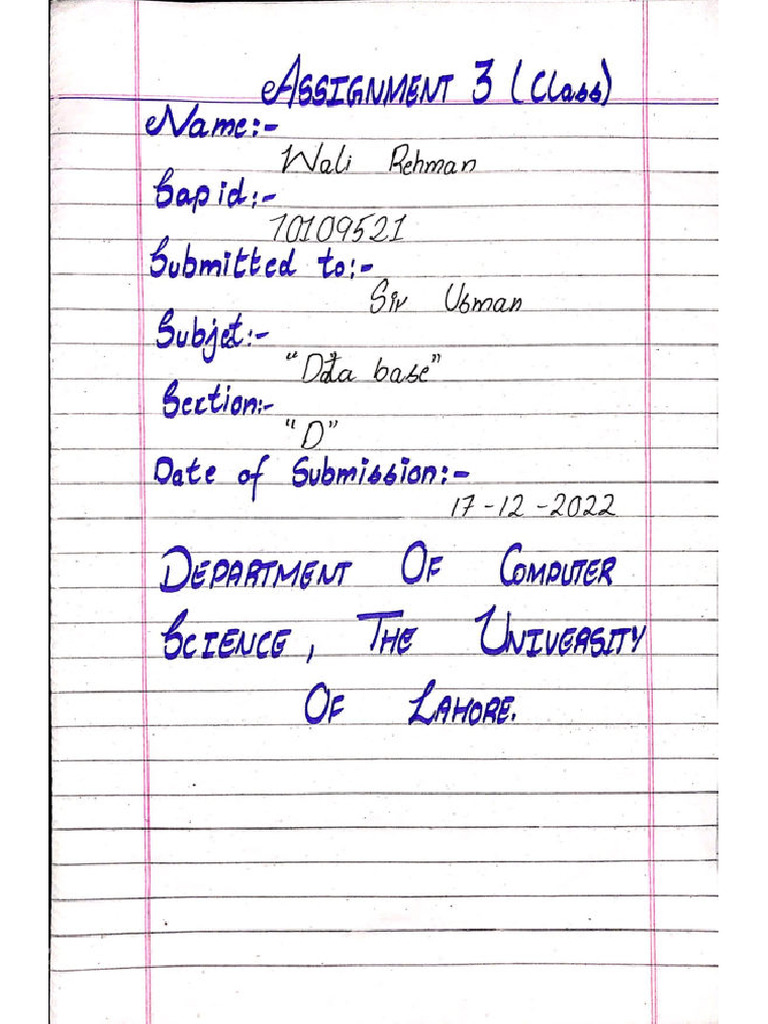 ASSIGNMENT 3 (Class)
Name:-
Wali Rehman
Sap id:-
70109521
Submitted to:-
Sir Usman
Subjet:-
"Data base"
Section:-
"D"
Date of Submission:-
17-12-2022
DEPARTMENT OF COMPUTER
SCIENCE, THE UNIVERSITY
OF LAHORE.